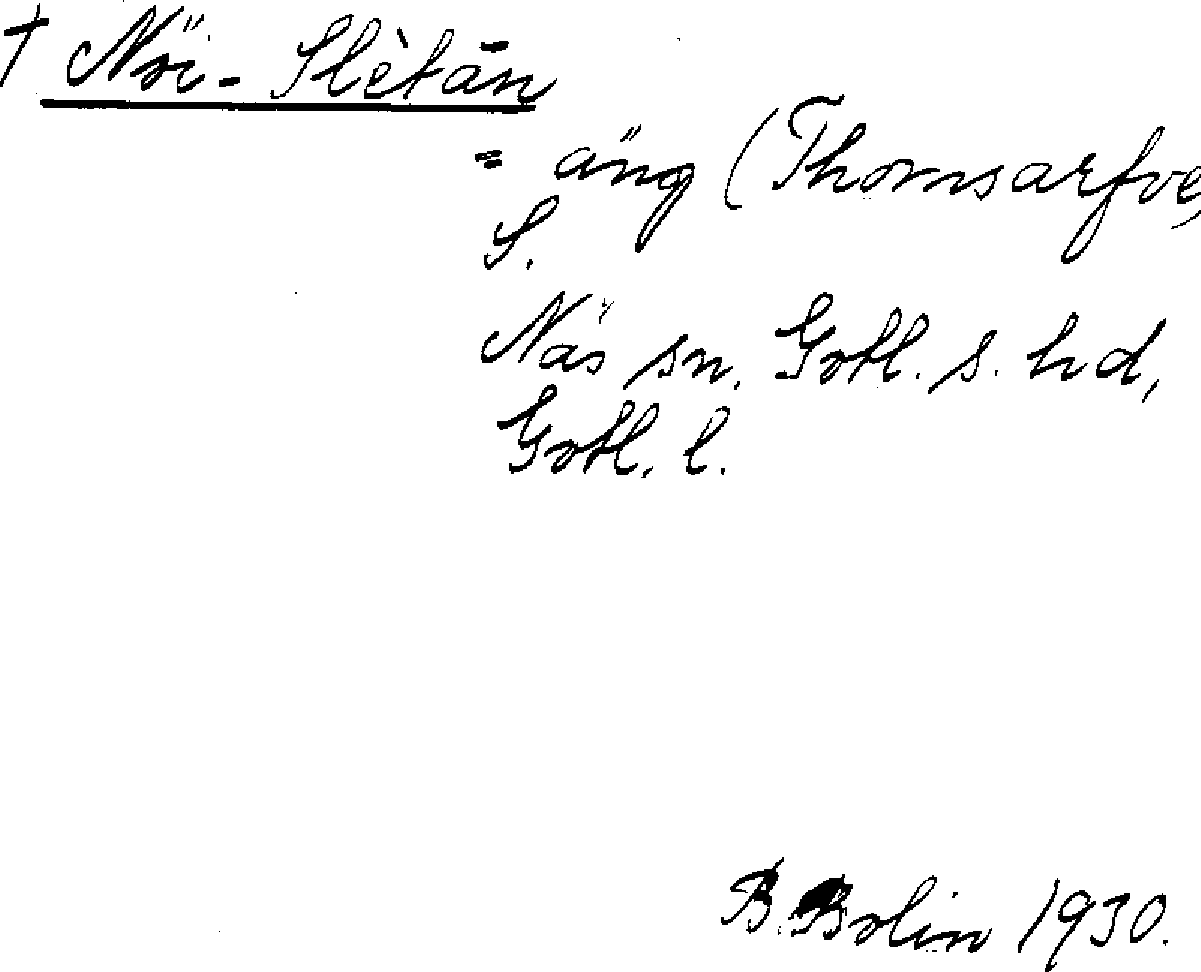 † Nöi-Slètān
= äng (Thomsarfve,
S.
Näs sn, Gotl. s. hd,
Gotl. l.
B. Bolin 1930.